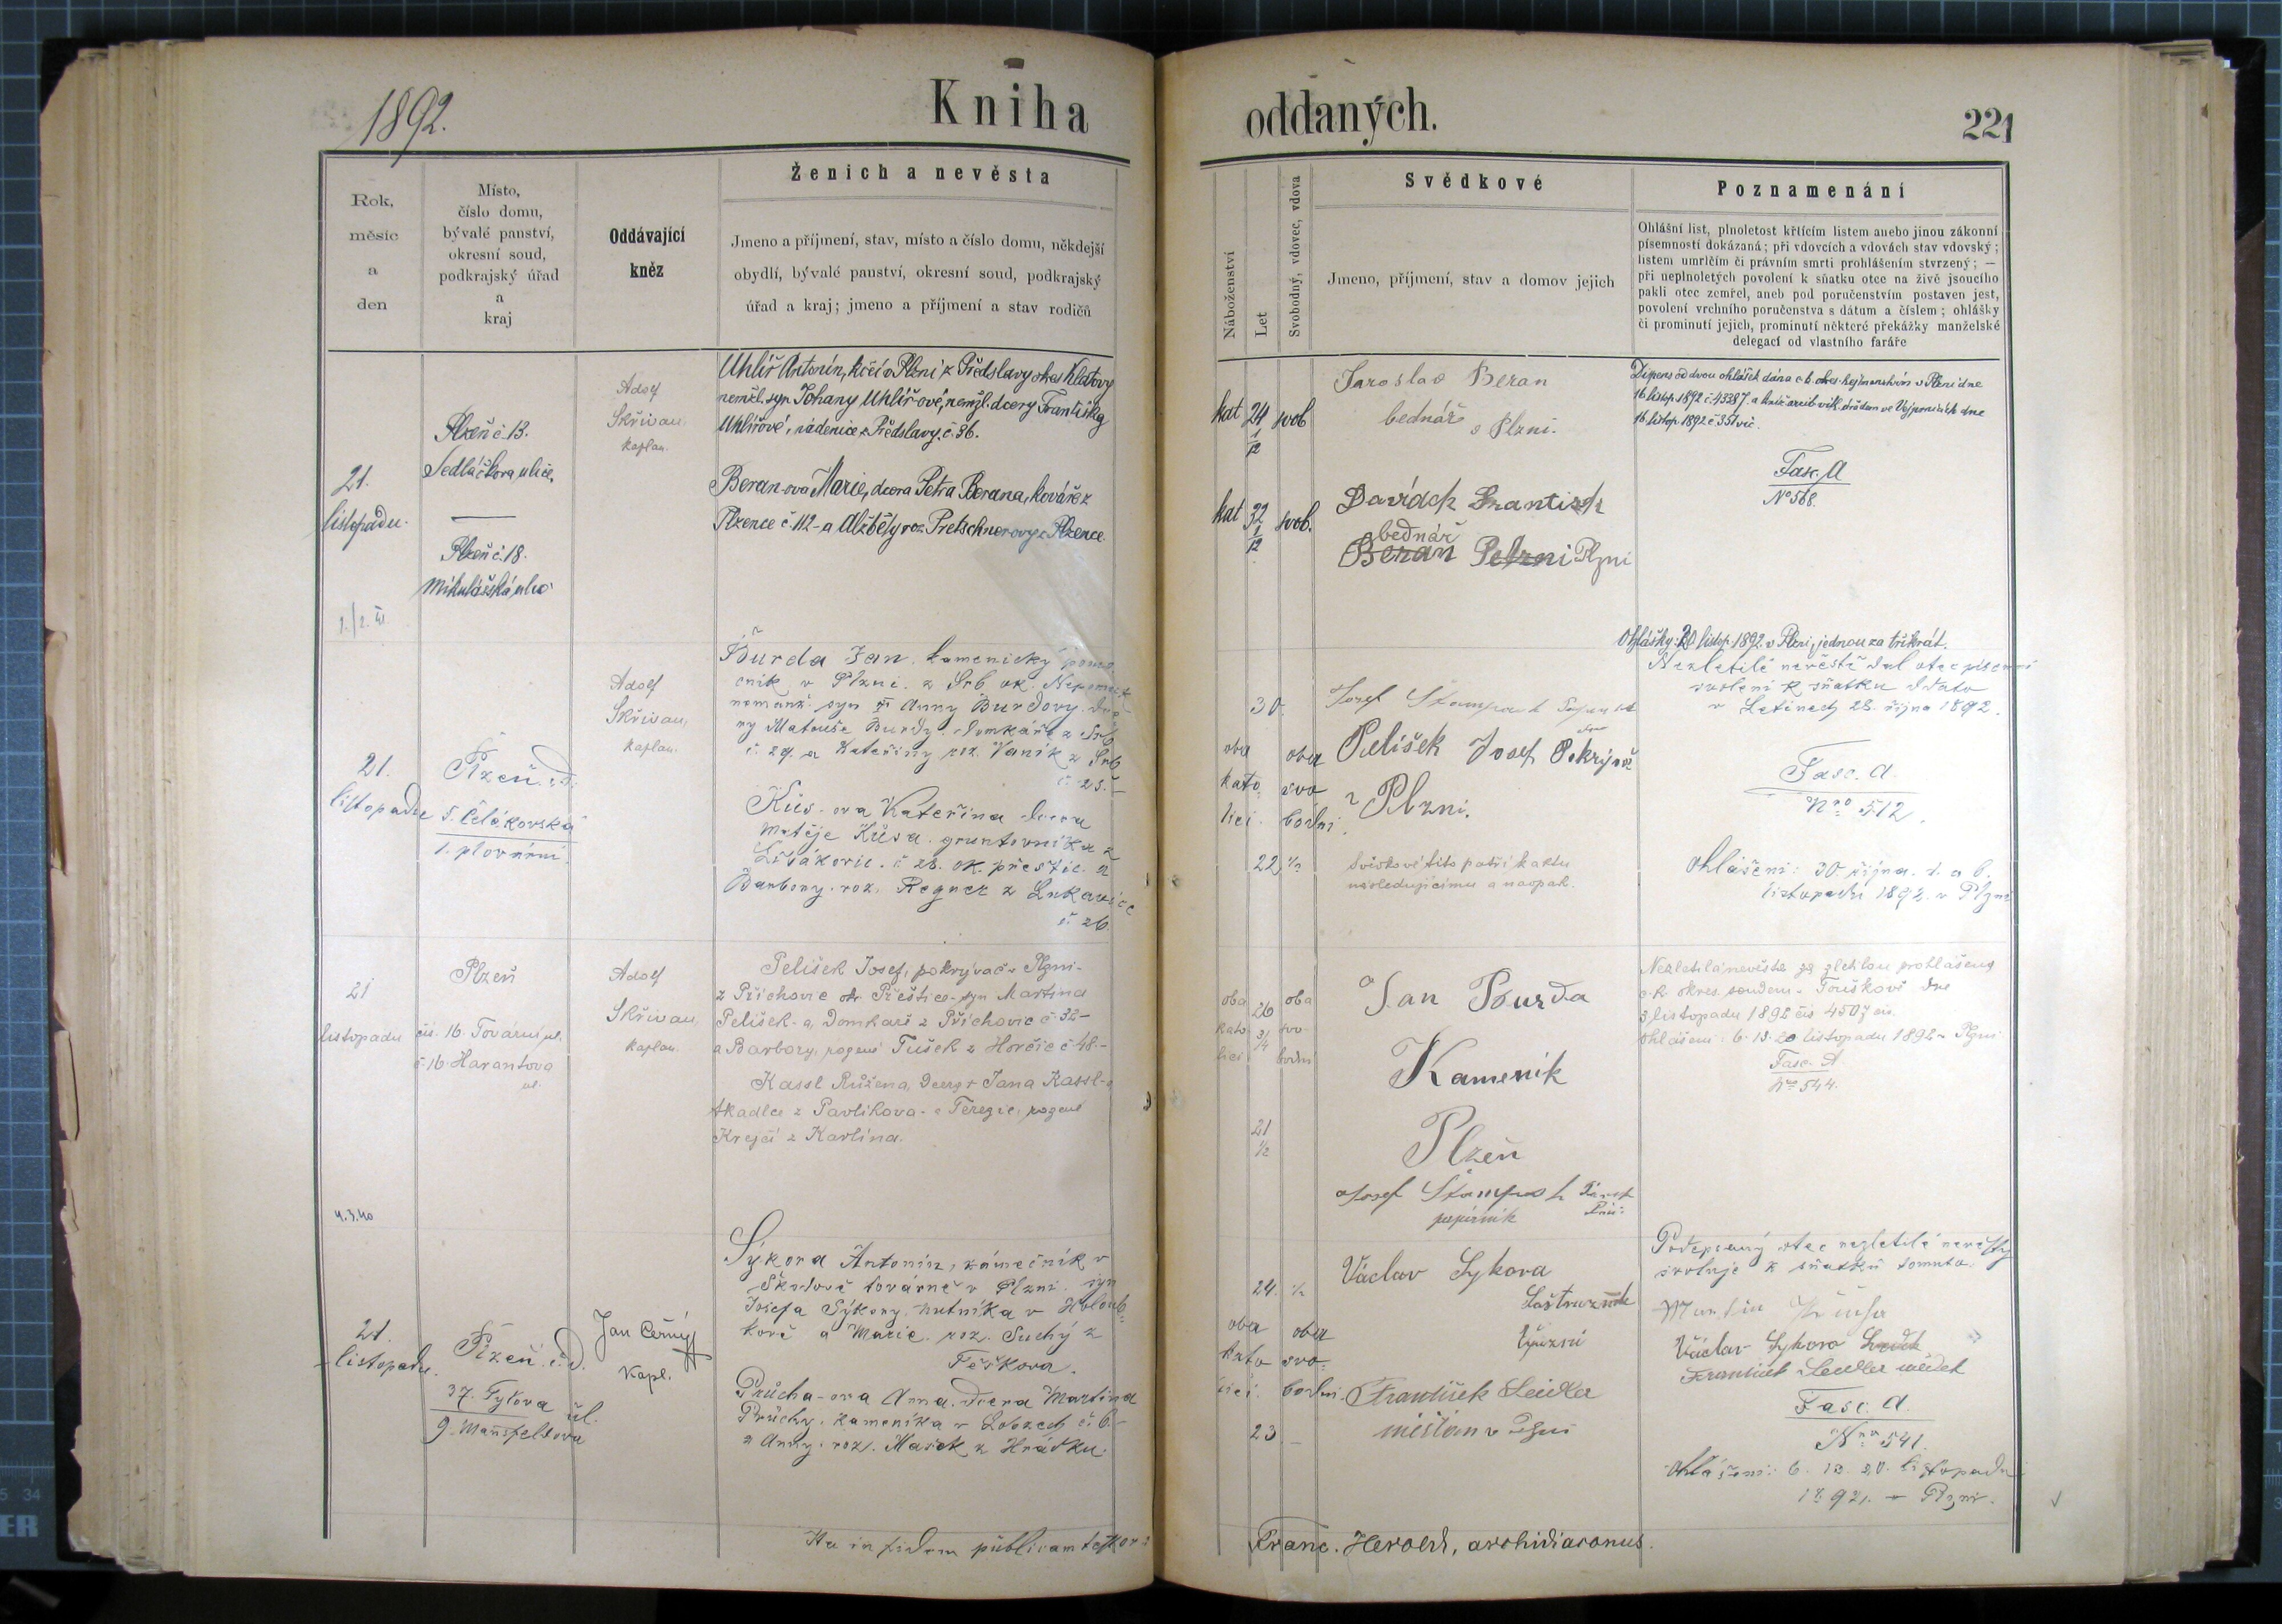 1892.
Kniha
Rok,
měsíc
a
den
Místo,
číslo domu,
bývalé panství,
okresní soud,
podkrajský úřad
a
kraj
Oddávající
kněz
Ženich a nevěsta
Jmeno a příjmení, stav, místo a číslo domu, někdejší
obydlí, bývalé panství, okresní soud, podkrajský
úřad a kraj; jmeno a příjmení a stav rodičů
21.
listopadu.
Plzeň č. 13.
Sedláčkova ulice,
Plzeň č. 18.
Mikulášská ulice
Adolf
Skřivan,
kaplan.
Uhlíř Antonín, kočí v Plzni z Předslavy okres Klatovy
nemžl. syn Johany Uhlířové, nemžl. dcery Františky
Uhlířové, nádenice z Předslavy č. 36.
Beran-ova Marie, dcera Petra Berana, kováře z
Plzence č 112 - a Alžběty roz. Pretschnerovy z Plzence.
21.
listopadu
Plzeň č. d.
5. Čelákovská
1. plovární.
Adolf
Skřivan,
kaplan.
Burda Jan. kamenický
v Plzni. z Srb ok.
nemanž. syn Anny Burdovy.
Matouše Burdy. domkáře z Srb
č. 29. a Kateřiny roz. Vaník z Srb
č. 25.
Kůs-ova Kateřina dcera
Matěje Kůsa. gruntovníka z
č. 28. ok. přeštic. a
Barbory. roz. Regner z Lukavice
č. 26.
21
listopadu
Plzeň
čís. 16. Tovární ul.
č. 16. Harantova
ul.
Adolf
Skřivan,
kaplan.
Pelíšek Josef, pokrývač v Plzni-
z Příchovic okr Přeštice - syn Martina
Pelíšek-a, Domkaře z Příchovic č 32-
a Barbory, rozené Tušek z Horčic č 48.-
Kassl Růžena, Dcera + Jana Kassl-a
tkadlce z Pavlíkova - a Terezie, rozené
Krejčí z Karlína.
4.3.40
21.
listopadu.
Plzeň. č. d.
37. Tylova ul.
9. Mansfeldova
Jan Černý
Kapl.
Sýkora Antonín, zámečník v
Škodově továrně v Plzni. syn
Josefa Sýkory. hutníka v
a Marie. roz. Suchý z
Průcha-ova Anna. dcera Martina
Průchy. kameníka v Lobzech č. 6.-
a Anny. roz. Mašek z Hrádku.
in fidem publicam
oddaných.
221
Náboženství
Let
Svobodný, vdovec, vdova
Svědkové
Jmeno, příjmení, stav a domov jejich
Poznamenání
Ohlášní list, plnoletost křticím listem anebo jinou zákonní
písemností dokázaná; při vdovcích a vdovách stav vdovský;
listem umrlčím či právním smrti prohlášením stvrzený; —
při neplnoletých povolení k sňatku otce na živě jsoucího
pakli otec zemřel, aneb pod poručenstvím postaven jest,
povolení vrchního poručenstva s dátum a číslem; ohlášky
či prominutí jejich, prominutí některé překážky manželské
delegací od vlastního faráře
kat 24 1/12 svob
kat 32 1/12 svob.
Jaroslav Beran
bednář
v Plzni.
Davídek Frantisek
bednář
Beran Plzni
Dispens od dvou ohlášek dána c. k. okres. hejtmanstvím v Plzni dne
16. listop. 1892 č. 43287. a kníž. arcib. vik. úřadem ve Vejprnicích dne
16. listop. 1892 č.
Fasc. A
No 568.
Ohlášky: 20 listop. 1892 v Plzni, jednou za třikrát.
30.
oba
kato
lící.
oba
svo
bodni.
22 1/2
Josef
Pelíšek Josef Pokrývač
v Plzni.
Svědkové tito patří k aktu
následujícímu a naopak.
Nezletilé nevěstě dal otec
svolení k sňatku ddato
v Letinech 28. října 1892.
Fasc. A.
Nro 512.
Ohlášení: 30. října. 1. a 6.
listopadu 1892. v Plzni
oba
kato
lici
26 3/4
oba
svo
bodni
21
1/2
Jan Burda
Kameník
Plzeň
Josef
papírník
Nezletilá nevěsta za zletilou prohlášena
c. k. okres. soudem v Touškově dne
3 listopadu 1892 čís 4507
Ohlášení: 6. 13. 20 listopadu 1892 v Plzni
Fasc. A
Nro 544.
24. 1/2
oba
kato
lící.
oba
svo-
bodni.
23 -
Václav Sykora
František Seidler
měšťan v Plzni
Podepsaný otec nezletilé nevěsty
svoluje k sňatku tomuto.
Martin Průcha
Václav Sykora
František Seidler svědek
Fasc. A.
Nro 541.
Ohlášení: 6. 13. 20. listopadu
1892. v Plzni.
Franc. Herold, archidiaconus.